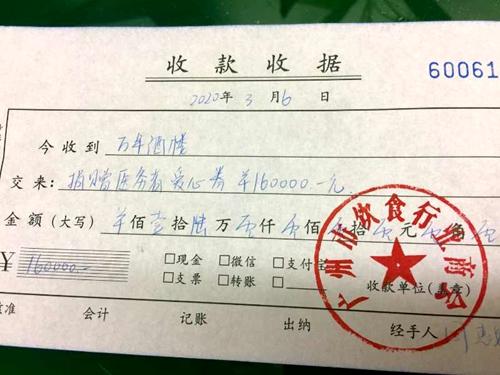 收款收据
60061
2020年3月6日
今收到 万年酒楼
交来：捐赠医务者爱心券 ¥160000.-元
金额（大写） ¥佰壹拾陆万零仟零佰零拾零元零角
¥160000.-
□现金 □微信 □支付宝
□支票 □转账 □
收款单位（盖章）
广州市饮食行业商会
核准 会计 记账 出纳 经手人